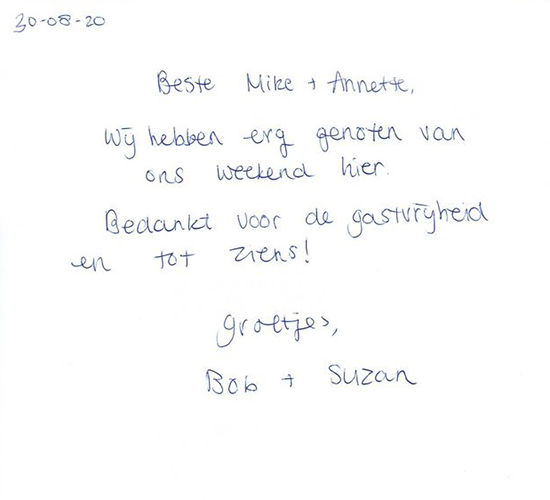 30-08-20
Beste Mike + Annette,
Wij hebben erg genoten van
ons weekend hier.
Bedankt voor de gastvrijheid
en tot ziens!
groetjes,
Bob + Suzan